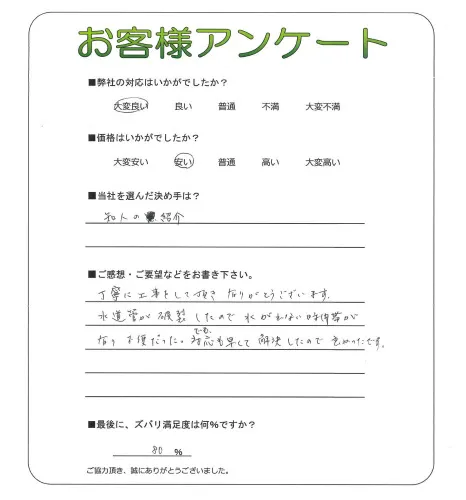 お客様アンケート
■弊社の対応はいかがでしたか？
大変良い 良い 普通 不満 大変不満
■価格はいかがでしたか？
大変安い 安い 普通 高い 大変高い
■当社を選んだ決め手は？
知人の 紹介
■ご感想・ご要望などをお書き下さい。
丁寧に工事をして頂き ありがとうございます.
水道管が破裂したので 水が出ない時間帯が
あり 不便だった。でも、対応も早くて 解決したので です.
■最後に、ズバリ満足度は何％ですか？
80 ％
ご協力頂き、誠にありがとうございました。